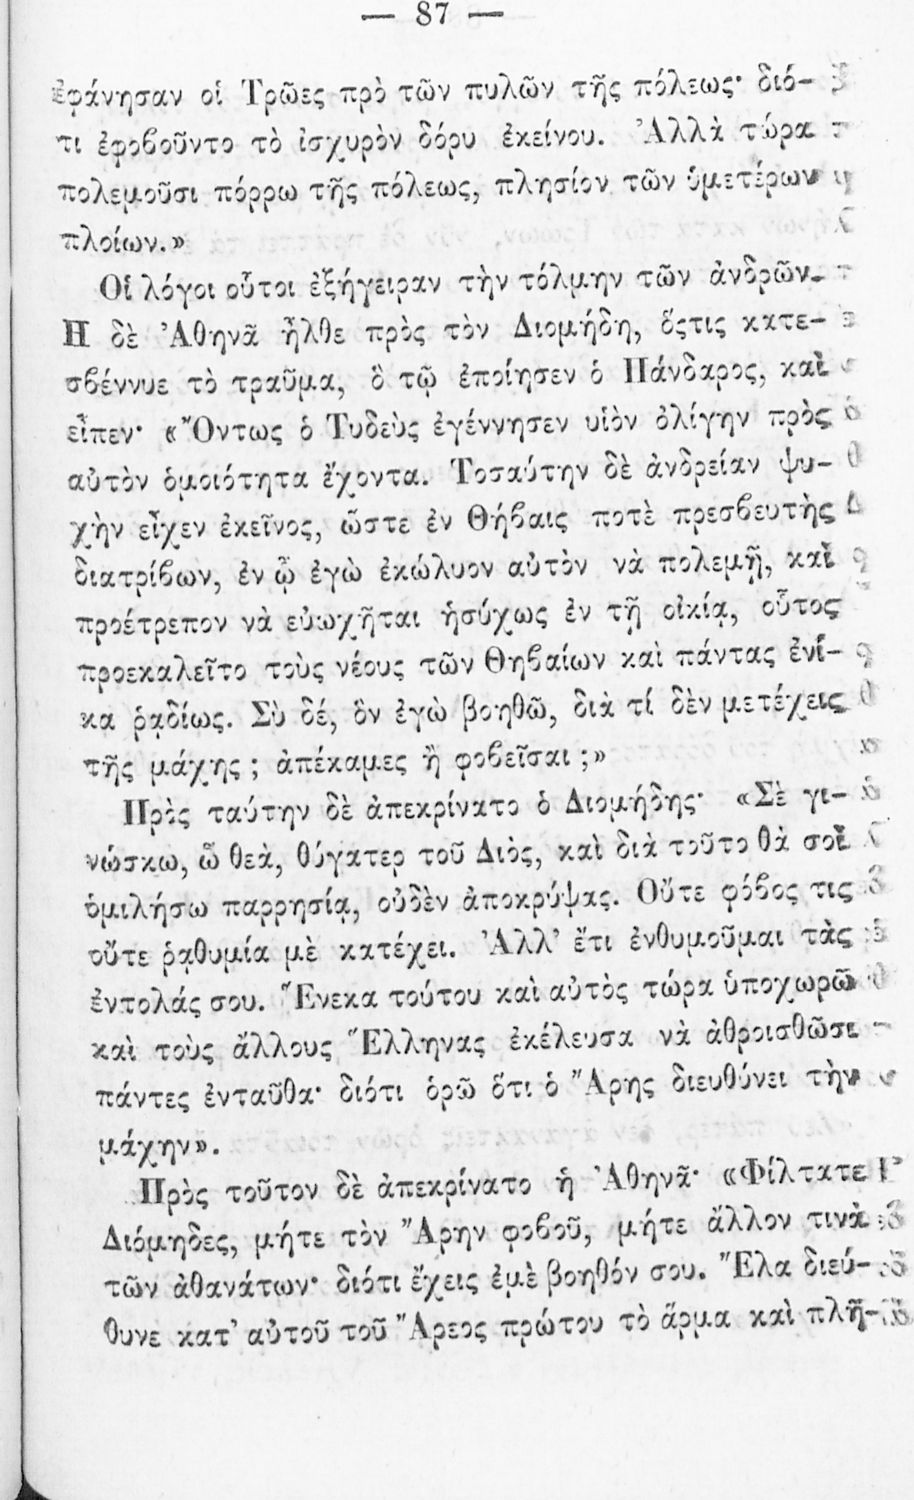 — 87 —
ἐφάνησαν οἱ Τρῶες πρὸ τῶν πυλῶν τῆς πόλεως· διό-
τι ἐφοβοῦντο τὸ ἰσχυρὸν δόρυ ἐκείνου. Ἀλλὰ τώρα
πολεμοῦσι πόρρω τῆς πόλεως, πλησίον τῶν ὑμετέρων
πλοίων.»
Οἱ λόγοι οὗτοι ἐξήγειραν τὴν τόλμην τῶν ἀνδρῶν.
Η δὲ Ἀθηνᾶ ἦλθε πρὸς τὸν Διομήδη, ὅςτις κατε-
σβέννυε τὸ τραῦμα, ὃ τῷ ἐποίησεν ὁ Πάνδαρος, καὶ
εἶπεν· «Ὄντως ὁ Τυδεὺς ἐγέννησεν υἱὸν ὀλίγην πρὸς
αὐτὸν ὁμοιότητα ἔχοντα. Τοσαύτην δὲ ἀνδρείαν ψυ-
χὴν εἶχεν ἐκεῖνος, ὥστε ἐν Θήβαις ποτὲ πρεσβευτὴς
διατρίβων, ἐν ᾧ ἐγὼ ἐκώλυον αὐτὸν νὰ πολεμῇ, καὶ
προέτρεπον νὰ εὐωχῆται ἡσύχως ἐν τῇ οἰκίᾳ, οὗτος
προεκαλεῖτο τοὺς νέους τῶν Θηβαίων καὶ πάντας ἐνί-
κα ῥᾳδίως. Σὺ δέ, ὃν ἐγὼ βοηθῶ, διὰ τί δὲν μετέχεις
τῆς μάχης ; ἀπέκαμες ἢ φοβεῖσαι ;»
Πρὸς ταύτην δὲ ἀπεκρίνατο ὁ Διομήδης· «Σὲ γι-
νώσκω, ὦ θεὰ, θύγατερ τοῦ Διὸς, καὶ διὰ τοῦτο θὰ σοὶ
ὁμιλήσω παρρησίᾳ, οὐδὲν ἀποκρύψας. Οὔτε φόβος τις
οὔτε ῥᾳθυμία μὲ κατέχει. Ἀλλ’ ἔτι ἐνθυμοῦμαι τὰς
ἐντολάς σου. Ἕνεκα τούτου καὶ αὐτὸς τώρα ὑποχωρῶ
καὶ τοὺς ἄλλους Ἕλληνας ἐκέλευσα νὰ ἀθροισθῶσι
πάντες ἐνταῦθα· διότι ὁρῶ ὅτι ὁ Ἄρης διευθύνει τὴν
μάχην».
Πρὸς τοῦτον δὲ ἀπεκρίνατο ἡ Ἀθηνᾶ· «Φίλτατε
Διόμηδες, μήτε τὸν Ἄρην φοβοῦ, μήτε ἄλλον τινὰ
τῶν ἀθανάτων· διότι ἔχεις ἐμὲ βοηθόν σου. Ἔλα διεύ-
θυνε κατ’ αὐτοῦ τοῦ Ἄρεος πρώτου τὸ ἅρμα καὶ πλῆ-